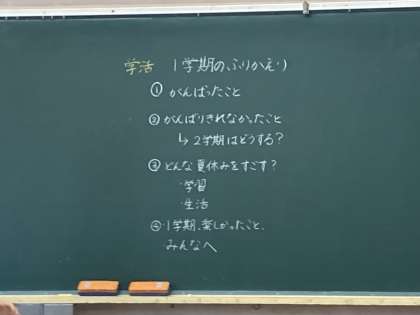 学活 1学期のふりかえり
① がんばったこと
② がんばりきれなかったこと
↳ 2学期はどうする?
③ どんな夏休みをすごす?
・学習
・生活
④ ・1学期、楽しかったこと、
みんなへ